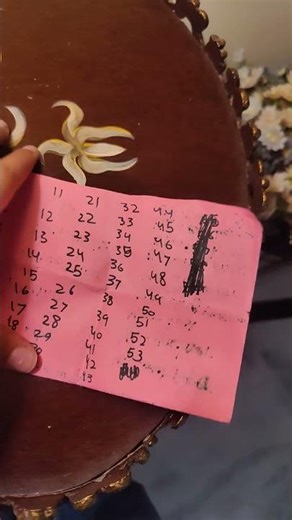 11 21 32 44
12 22 33 45
13 23 34 46
14 24 35 47
15 25 36 48
16 26 37 49
17 27 38 50
18 28 39 51
29 40 52
41 53
42
43